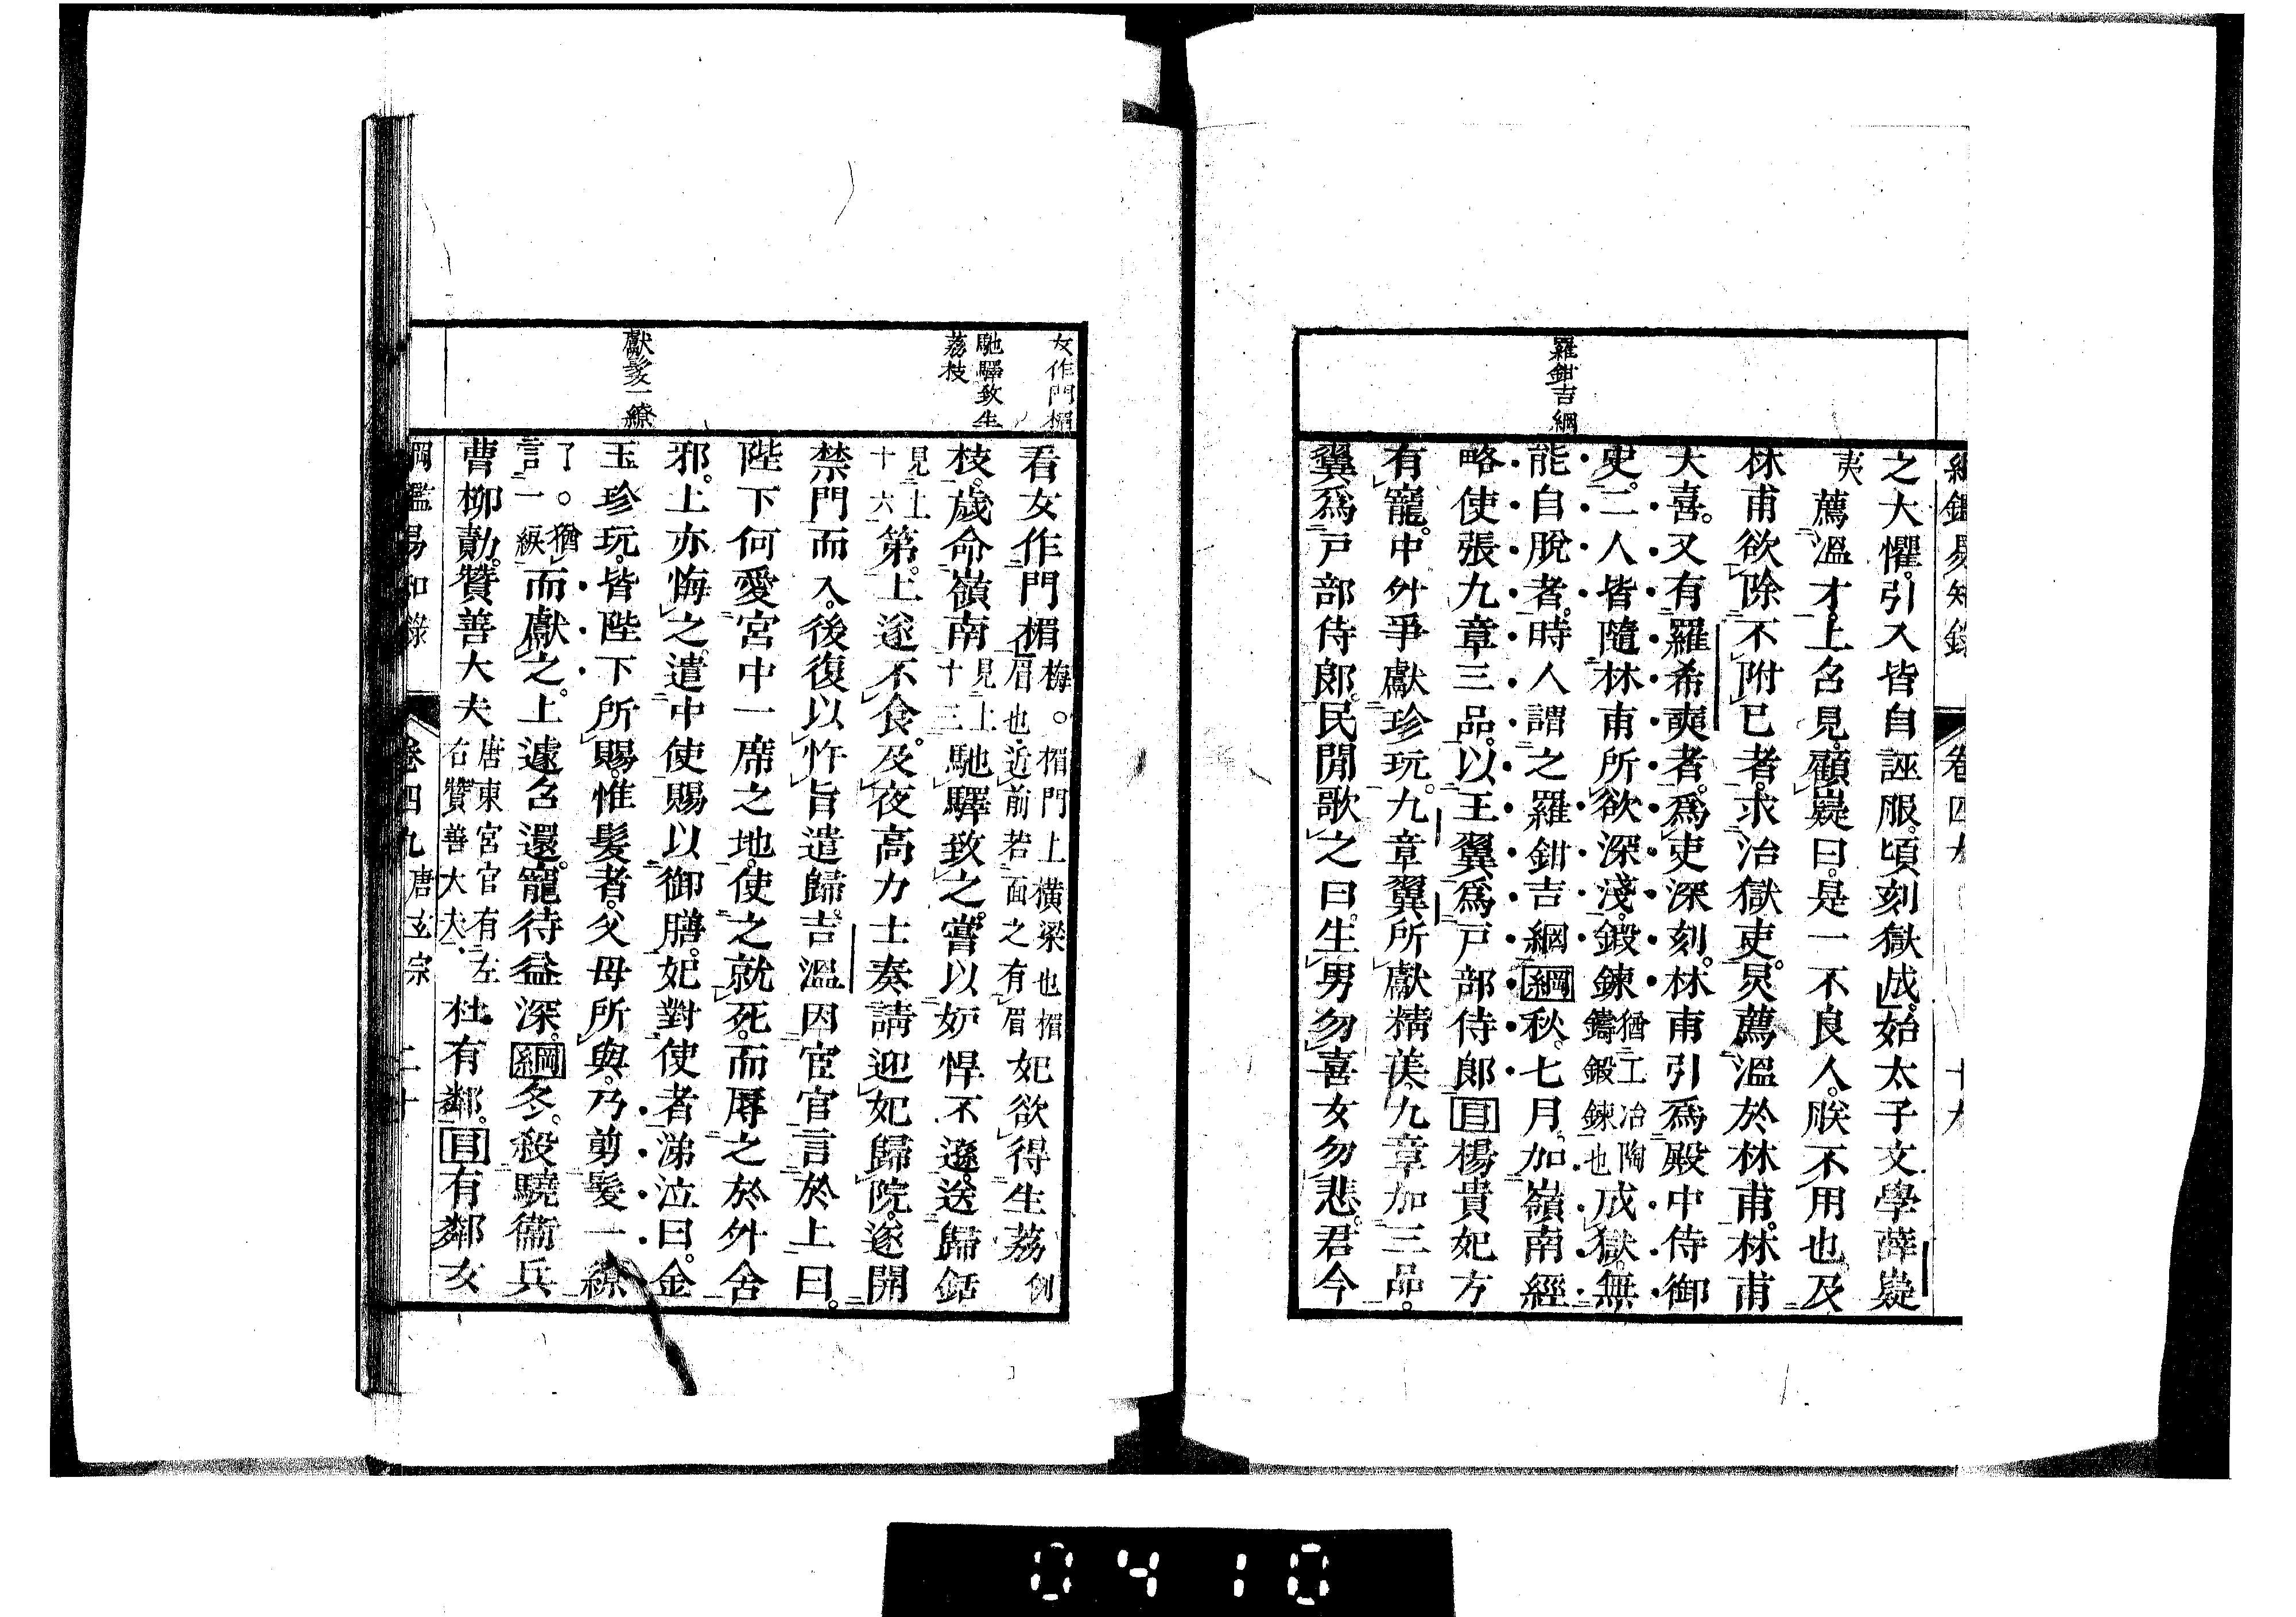 綱鑑易知錄 卷四九 十九
羅鉗吉網
之大懼。引入皆自誣服。頃刻獄成。始太子文學薛嶷
夷薦溫才。上召見。顧嶷曰。是一不良人。朕不用也。及
林甫欲除不附己者。求治獄吏。炅薦溫於林甫。林甫
大喜。又有羅希奭者。爲吏深刻。林甫引爲殿中侍御
史。二人皆隨林甫所欲深淺。鍛鍊猶工冶陶鑄鍛鍊也成獄。無
能自脫者。時人謂之羅鉗吉網綱秋。七月。加嶺南經
略使張九章三品。以王翼爲戸部侍郞目楊貴妃方
有寵。中外爭獻珍玩。九章翼所獻精美。九章加三品。
翼爲戸部侍郞。民閒歌之曰。生男勿喜女勿悲。君今
女作門楣
馳驛致生
荔枝
獻髮一繚
看女作門楣梅。楣門上橫梁也楣眉也。近前若面之有眉妃欲得生荔例
枝。歲命嶺南見上十三馳驛致之。嘗以妒悍不遜。送歸銛
見上十六第。上遂不食。及夜高力士奏請迎妃歸院。遂開
禁門而入。後復以忤旨遣歸。吉溫因宦官言於上曰。
陛下何愛宮中一席之地。使之就死。而辱之於外舍
邪。上亦悔之。遣中使賜以御膳。妃對使者涕泣曰。金
玉珍玩。皆陛下所賜。惟髮者。父母所與。乃剪髮一繚
了。猶言一綟而獻之。上遽召還。寵待益深。綱冬。殺驍衞兵
曹柳勣。贊善大夫唐東宮官有左右贊善大夫。杜有鄰。目有鄰女
綱鑑易知錄 卷四九 唐玄宗 二十
0410